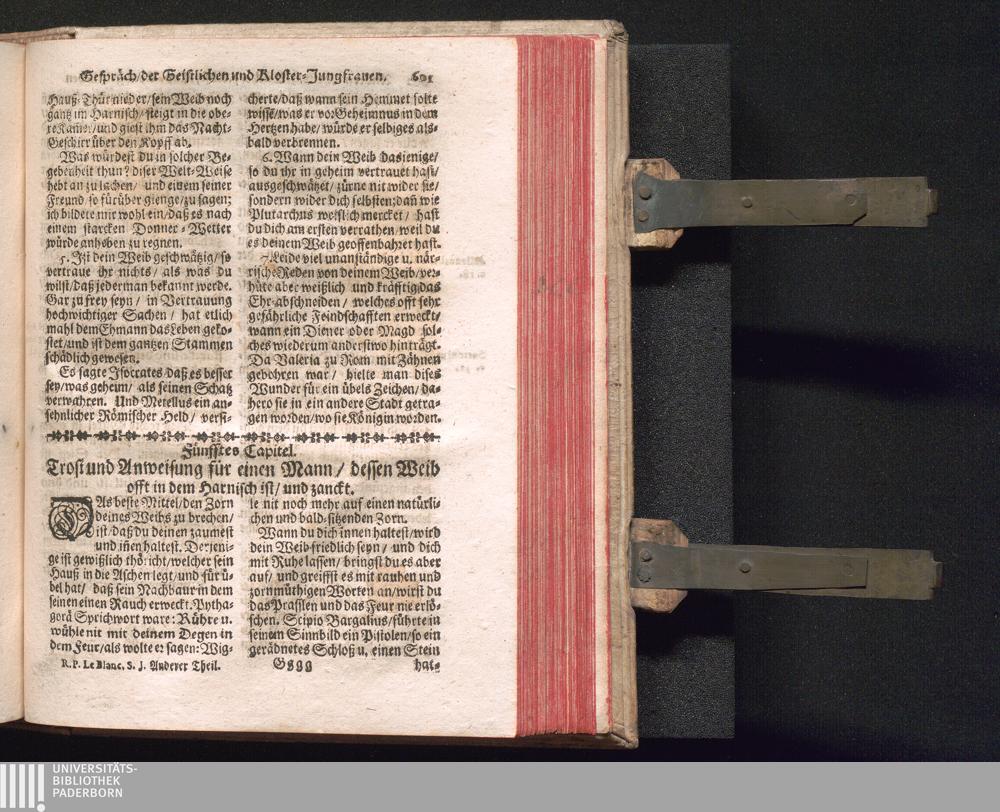 Gespräch/der Geistlichen und Kloster-Jungfrauen. 601
Hauß-Thür nieder/sein Weib noch
gantz im Harnisch/steigt in die obe-
re Kamer/und giest ihm das Nacht-
Geschirr über den Kopff ab.
Was würdest du in solcher Be-
gebenheit thun? diser Welt-Weise
hebt an zu lachen/ und einem seiner
Freund so fürüber gienge/zu sagen;
ich bildete mir wohl ein/daß es nach
einem starcken Donner-Wetter
würde anheben zu regnen.
5. Ist dein Weib geschwätzig/so
vertraue ihr nichts/ als was du
wilst/daß jederman bekannt werde.
Gar zu frey seyn/ in Vertrauung
hochwichtiger Sachen/ hat etlich
mahl dem Ehmann das Leben geko-
stet/und ist dem gantzen Stammen
schädlich gewesen.
Es sagte Isocrates daß es besser
sey/was geheim/ als seinen Schatz
verwahren. Und Metellus ein an-
sehnlicher Römischer Held/ versi-
cherte/daß wann sein Hemmet solte
wissē/was er vor Geheimnus in dem
Hertzen habe/ würde er selbiges als-
bald verbrennen.
6. Wann dein Weib dasjenige/
so du ihr in geheim vertrauet hast/
ausgeschwätzet/ zürne nit wider sie/
sondern wider dich selbsten; dañ wie
Plutarchus weißlich mercket/ hast
du dich am ersten verrathen/weil du
es deinem Weib geoffenbahret hast.
7. Leide viel unanständige u. när-
rische Reden von deinem Weib/ver-
hüte aber weißlich und kräfftig/das
Ehr-abschneiden/ welches offt sehr
gefährliche Feindschafften erweckt/
wann ein Diener oder Magd sol-
ches wiederum anderstwo hinträgt.
Da Valeria zu Rom mit Zähnen
gebohren war/ hielte man dises
Wunder für ein übels Zeichen/ da-
hero sie in ein andere Stadt getra-
gen worden/wo sie Königin worden.
Fünfftes Capitel.
Trost und Anweisung für einen Mann/ dessen Weib
offt in dem Harnisch ist/ und zanckt.
DAs beste Mittel/den Zorn
deines Weibs zu brechen/
ist/daß du deinen zaumest
und iñen haltest. Derjeni-
ge ist gewißlich thöricht/welcher sein
Hauß in die Aschen legt/und für ü-
bel hat/ daß sein Nachbaur in dem
seinen einen Rauch erweckt. Pytha-
gorä Sprichwort ware: Rühre u.
wühle nit mit deinem Degen in
dem Feur/als wolte er sagen: Wig-
le nit noch mehr auf einen natürli-
chen und bald-sitzenden Zorn.
Wann du dich innen haltest/wird
dein Weib friedlich seyn/ und dich
mit Ruhe lassen/ bringst du es aber
auf/ und greiffst es mit rauhen und
zornmüthigen Worten an/wirst du
das Prasslen und das Feur nie erlö-
schen. Scipio Bargalius/führte in
seinem Sinnbild ein Pistolen/so ein
gerädnetes Schloß u. einen Stein
R.P. Le Blanc, S. J. Anderer Theil. Gggg hat-
UNIVERSITÄTS-
BIBLIOTHEK
PADERBORN